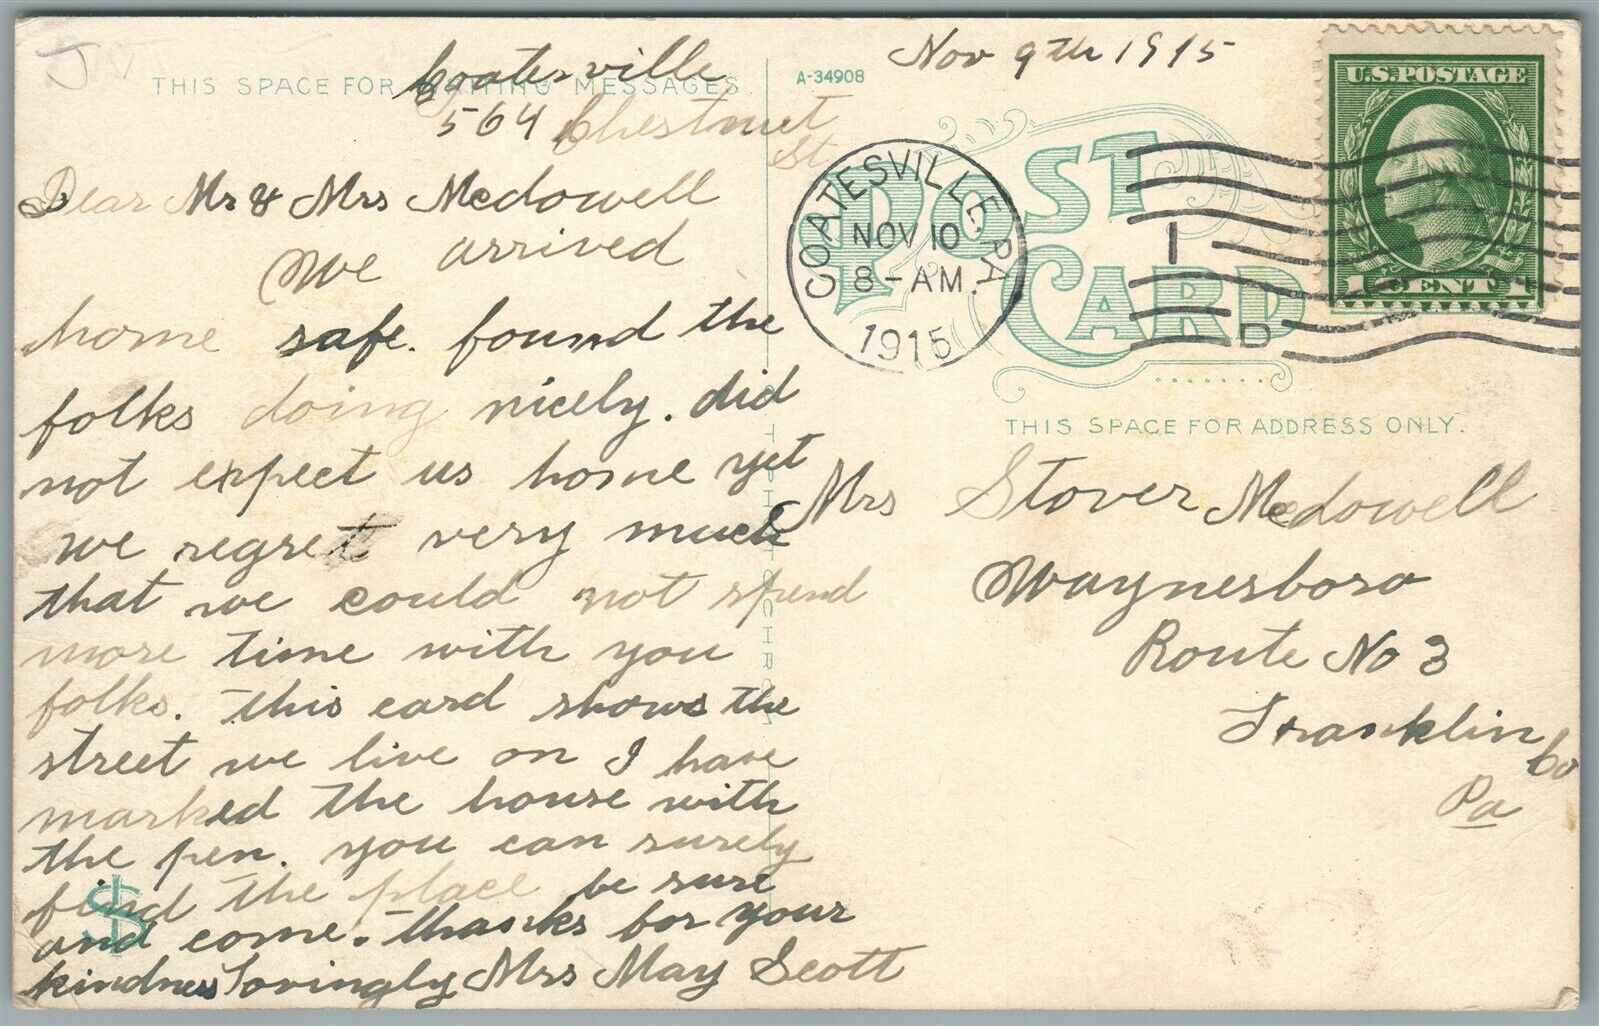 THIS SPACE FOR WRITING MESSAGES.
Coatesville
564 Chestnut
St
Dear Mr & Mrs Mcdowell
We arrived
home safe. found the
folks doing nicely. did
not expect us home yet
we regret very much
that we could not spend
more time with you
folks. this card shows the
street we live on I have
marked the house with
the pen. you can surely
find the place be sure
and come. thanks for your
kindness Lovingly Mrs May Scott
A-34908
Nov 9th 1915
POST
CARD
COATESVILLE, PA.
NOV 10
8-AM
1915
1
D
U.S. POSTAGE
1 CENT 1
THIS SPACE FOR ADDRESS ONLY.
Mrs Stover Mcdowell
Waynesboro
Route No 3
Franklin Co
Pa
$